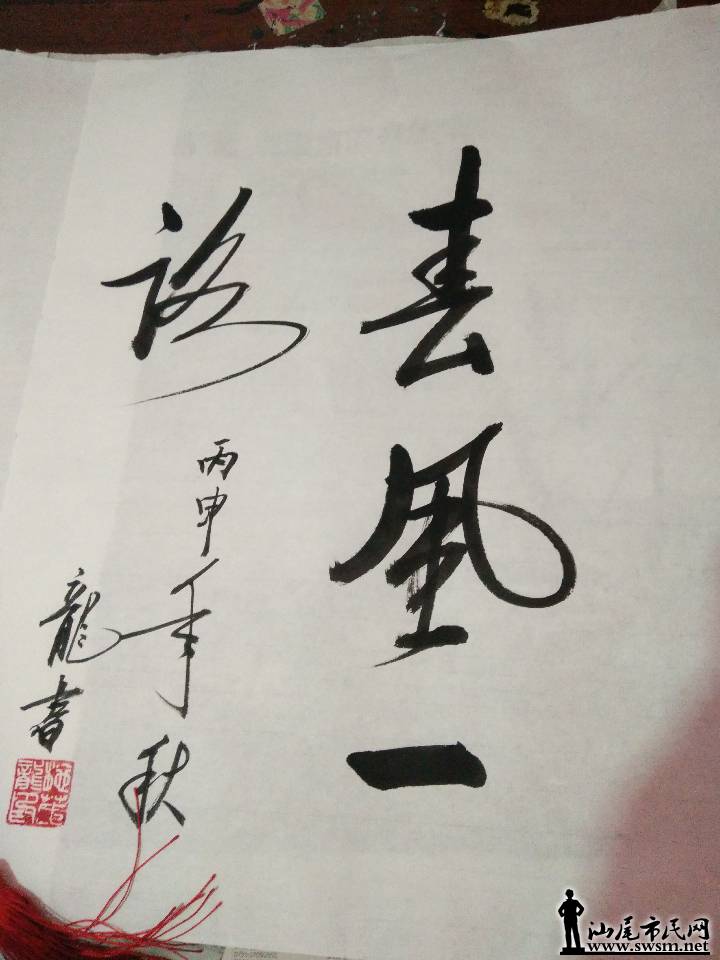 春風一
路
丙申年秋
龍書
汕尾市民网
www.swsm.net